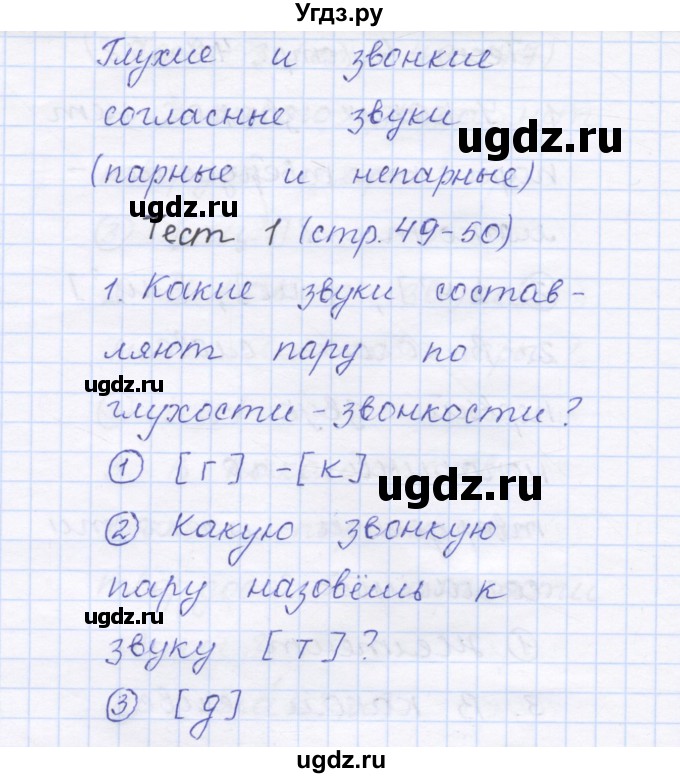 Угдз.ру
Глухие и звонкие
согласные звуки
ugdz.ru
(парные и непарные)
ugdz.ru
Тест 1 (стр. 49-50)
1. Какие звуки состав-
ляют пару по
ugdz.ru
глухости - звонкости?
① [г] - [к]
ugdz.ru
② Какую звонкую
пару назовёшь к
ugdz.ru
звуку [т]?
③ [д]
ugdz.ru